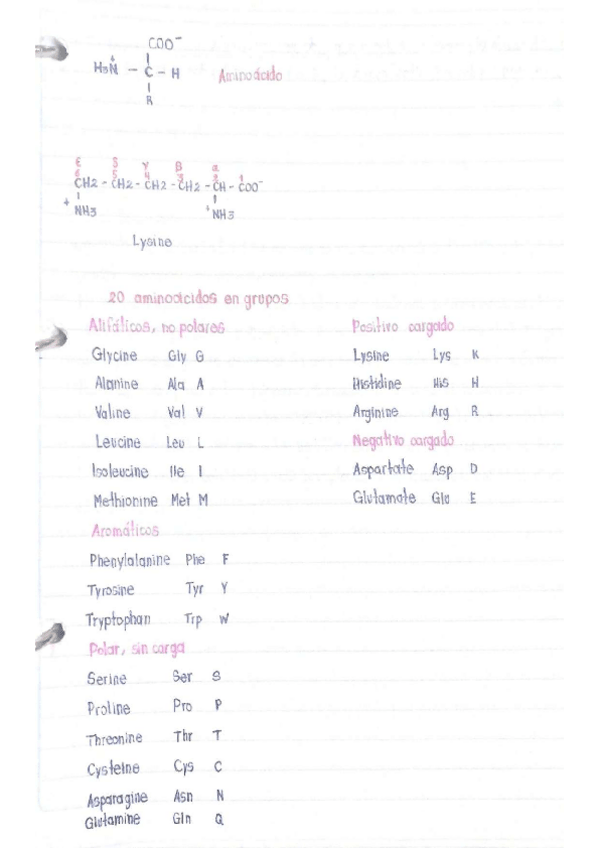 COO⁻
H₃N⁺ - C - H Aminoácido
R
ε δ γ β α
6 5 4 3 2 1
CH2 - CH2 - CH2 - CH2 - CH - COO⁻
+ NH3 + NH3
Lysine
20 aminoácidos en grupos
Alifálicos, no polares
Glycine Gly G
Alanine Ala A
Valine Val V
Leucine Leu L
Isoleucine Ile I
Methionine Met M
Aromáticos
Phenylalanine Phe F
Tyrosine Tyr Y
Tryptophan Trp W
Polar, sin carga
Serine Ser S
Proline Pro P
Threonine Thr T
Cysteine Cys C
Asparagine Asn N
Glutamine Gln Q
Positivo cargado
Lysine Lys K
Histidine His H
Arginine Arg R
Negativo cargado
Aspartate Asp D
Glutamate Glu E